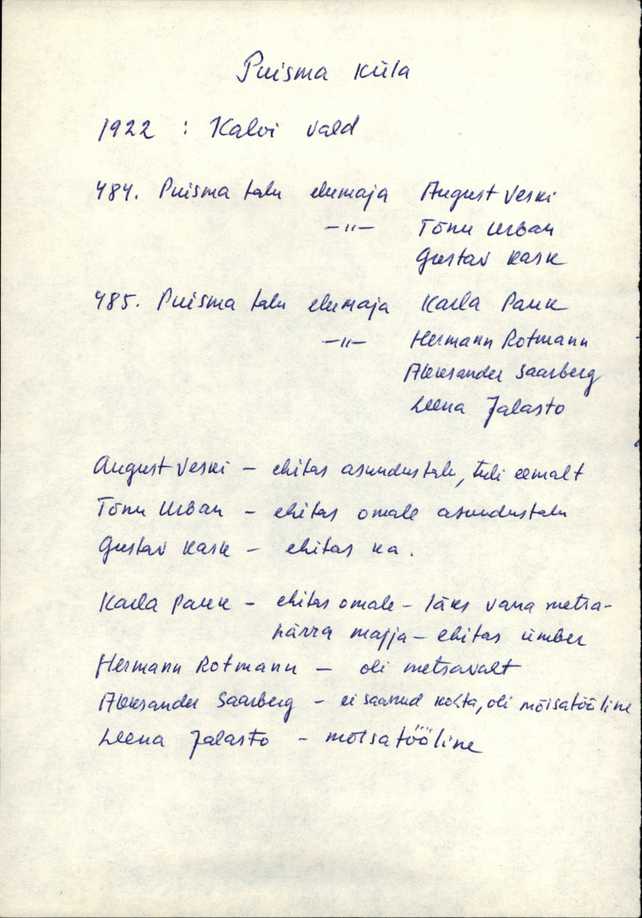 Puisma küla
1922 : Kalvi vald
484. Puisma talu elumaja August Veski
—"— Tõnu Urban
Gustav Kask
485. Puisma talu elumaja Karla Pauk
—"— Hermann Rotmann
Aleksander Saarberg
Leena Jalasto
August Veski – ehitas asundustalu, tuli eemalt
Tõnu Urban – ehitas omale asundustalu
Gustav Kask – ehitas ka.
Karla Pauk – ehitas omale – läks vana metsa-
härra majja – ehitas ümber
Hermann Rotmann – oli metsavaht
Aleksander Saarberg – ei saanud kohta, oli mõisatööline
Leena Jalasto – mõisatööline